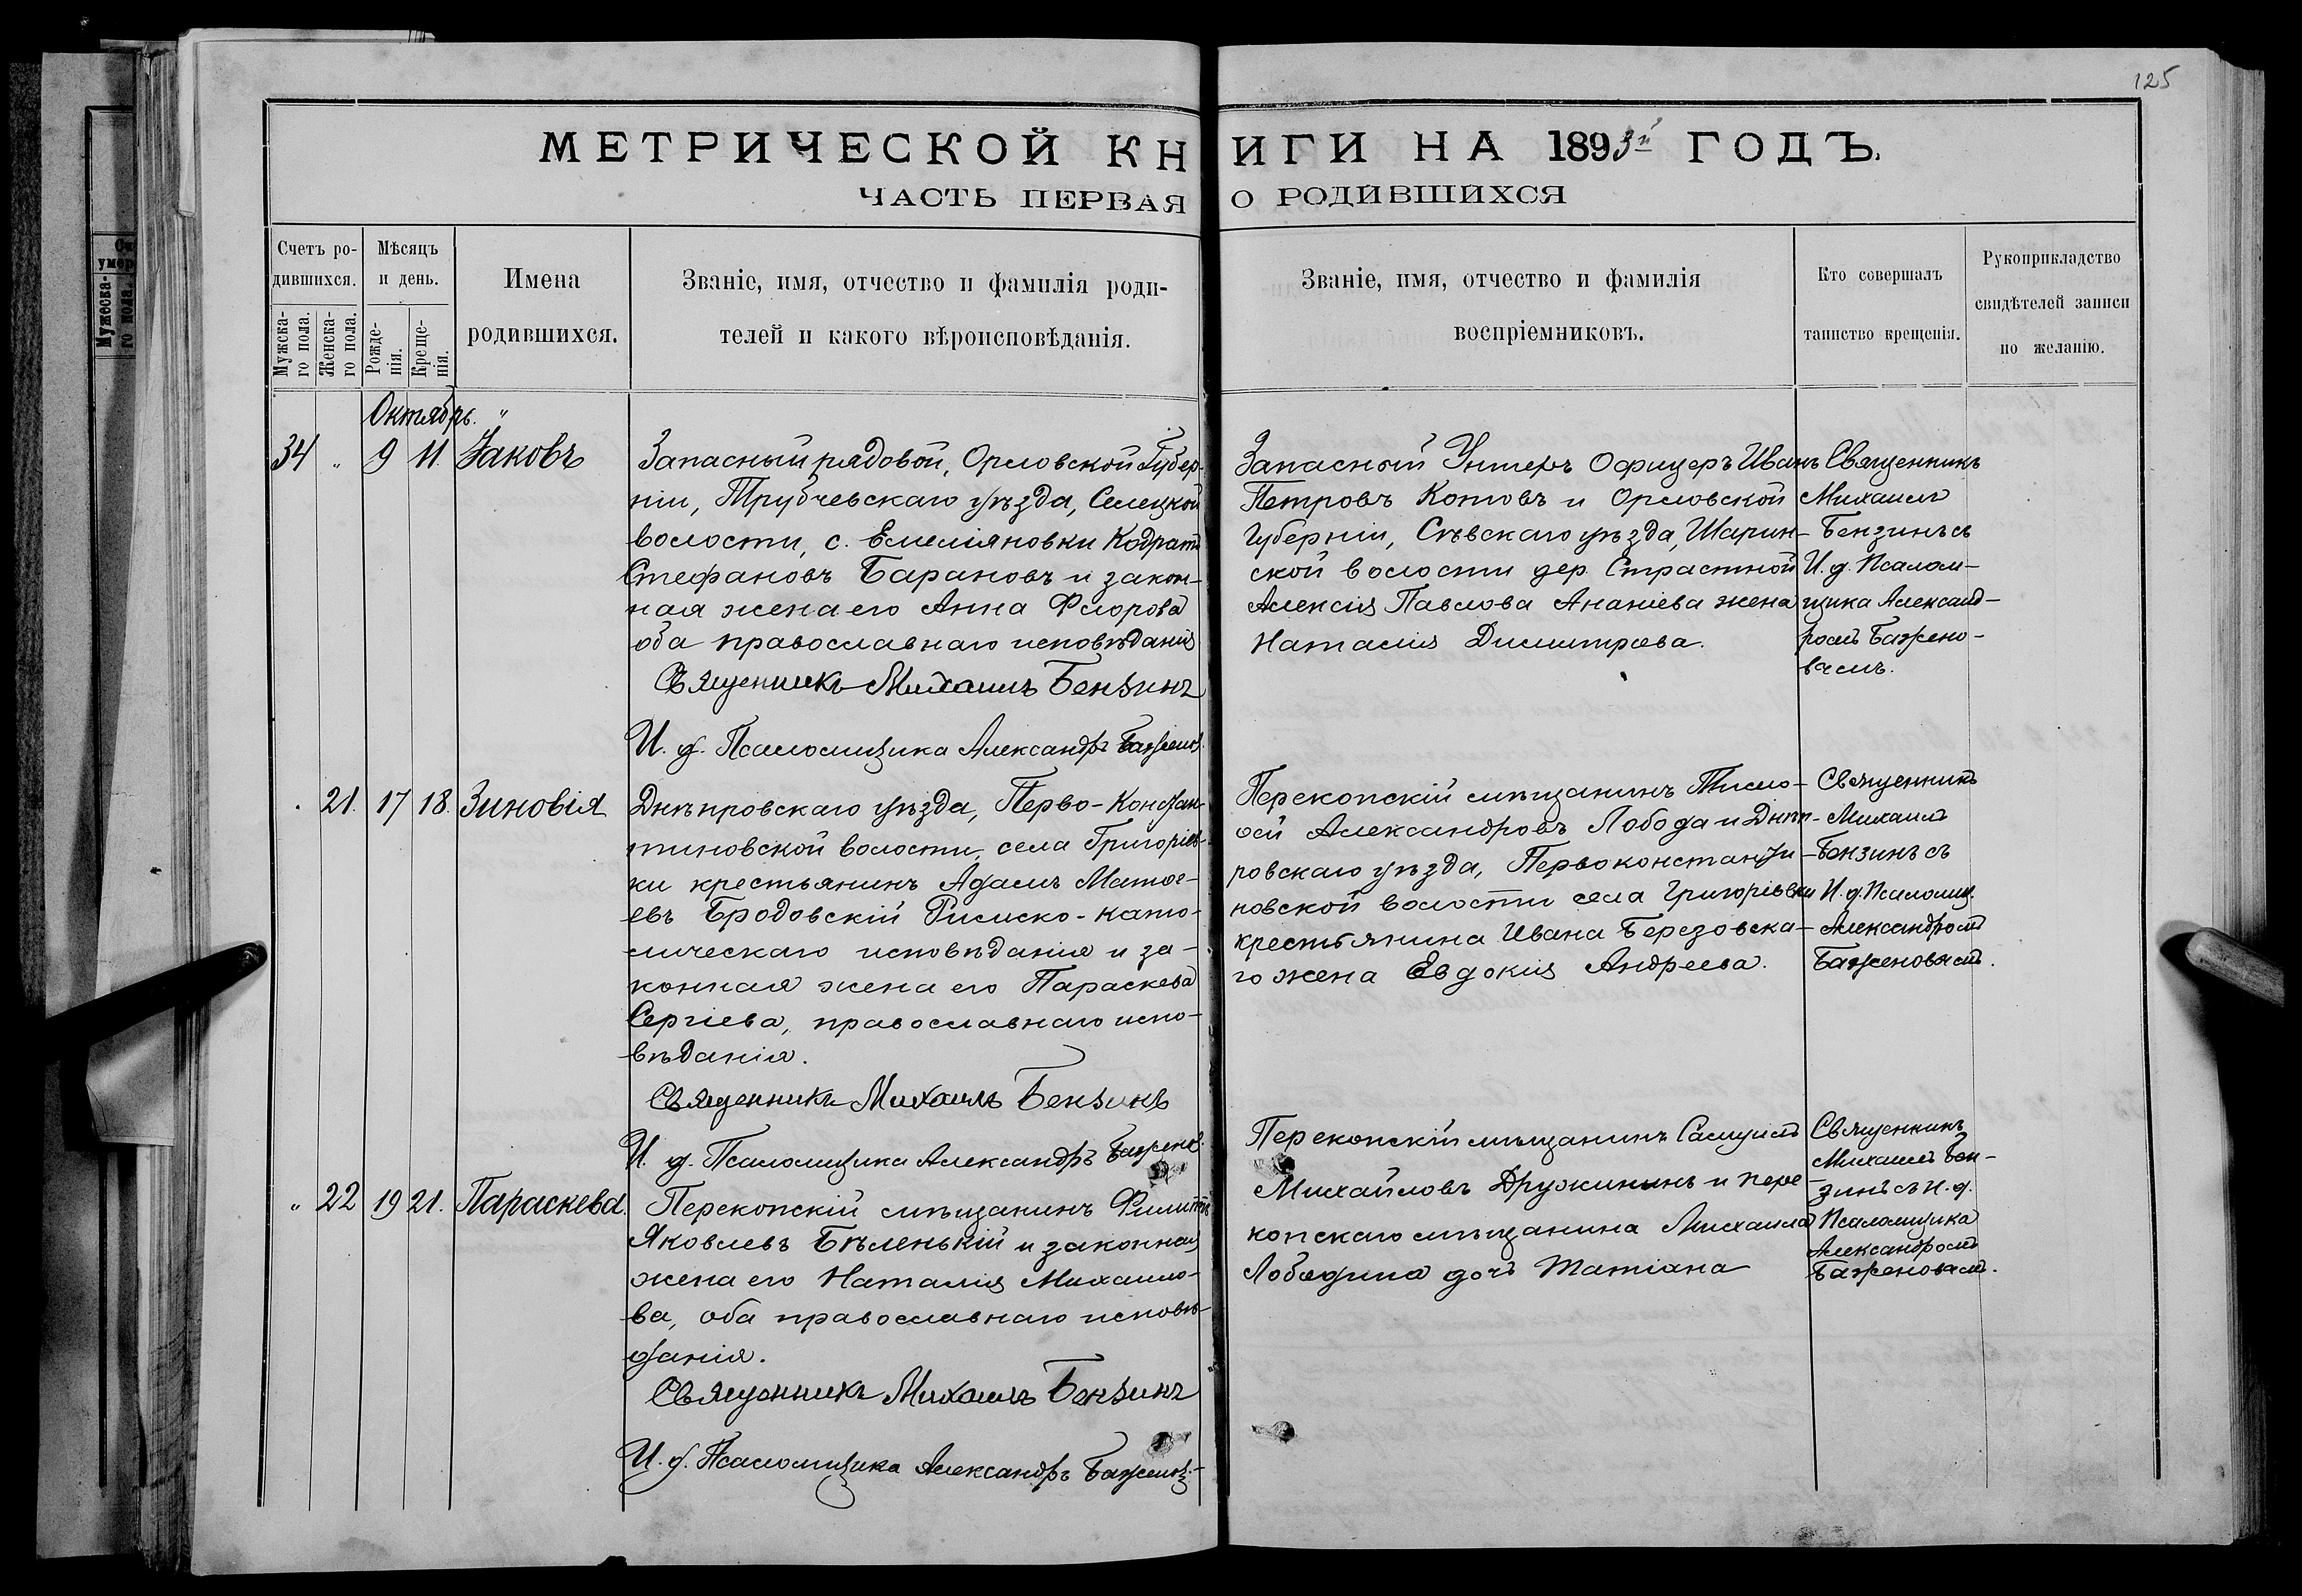 125
МЕТРИЧЕСКОЙ КНИГИ НА 1893й ГОДЪ.
ЧАСТЬ ПЕРВАЯ О РОДИВШИХСЯ
Счетъ ро-
дившихся.
Мужска-
го пола.
Женска-
го пола.
Мѣсяцъ
и день.
Рожде-
нія.
Креще-
нія.
Имена
родившихся.
Званіе, имя, отчество и фамилія роди-
телей и какого вѣроисповѣданія.
Званіе, имя, отчество и фамилія
воспріемниковъ.
Кто совершалъ
таинство крещенія.
Рукоприкладство
свидѣтелей записи
по желанію.
Октябрь. "
34 " 9 11. Іаковъ
Запасный рядовой, Орловской Губер-
ніи, Трубчевскаго уѣзда, Селецкой
волости, с. Емеліяновки Кодратъ
Стефановъ Барановъ и закон-
ная жена его Анна Флорова
оба православнаго исповѣданія
Священникъ Михаилъ Бензинъ
И. д. Псаломщика Александръ Баженов
Запасной Унтеръ Офицеръ Иванъ
Петровъ Котовъ и Орловской
Губерніи, Сѣвскаго уѣзда, Шарин-
ской волости дер. Страстной
Алексія Павлова Ананіева жена
Наталія Димитріева.
Священникъ
Михаилъ
Бензинъ съ
И. д. Псалом-
щика Александ-
ромъ Бажено-
вымъ.
. 21. 17 18. Зиновія
Днѣпровскаго уѣзда, Перво-Констан-
тиновской волости, села Григорьев-
ки крестьянинъ Адамъ Матѳе-
евъ Бродовскій Римско-като-
лическаго исповѣданія и за-
конная жена его Параскева
Сергіева, православнаго испо-
вѣданія.
Священникъ Михаилъ Бензинъ
И. д. Псаломщика Александръ Баженов
Перекопскій мѣщанинъ Тимо-
ѳей Александровъ Лобода и Днѣп-
ровскаго уѣзда, Первоконстанти-
новской волости села Григорьевки
крестьянина Ивана Березовска-
го жена Евдокія Андреева.
Священникъ
Михаилъ
Бензинъ съ
И. д. Псаломщ.
Александромъ
Баженовымъ.
" 22 19 21. Параскева.
Перекопскій мѣщанинъ Филиппъ
Яковлевъ Бѣленькій и законная
жена его Наталія Михаило-
ва, оба православнаго исповѣ-
данія.
Священникъ Михаилъ Бензинъ
И. д. Псаломщика Александръ Баженов
Перекопскій мѣщанинъ Самуилъ
Михайловъ Дружининъ и пере-
копскаго мѣщанина Михаила
дочь Татіана
Священникъ
Михаилъ Бен-
зинъ съ И. д.
Псаломщика
Александромъ
Баженовымъ.